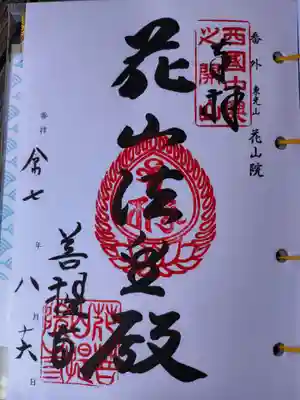 番外 東光山 花山院
奉拝
西国中興
之開山
花山法皇殿
菩提寺
参拝 令七年八月十六日